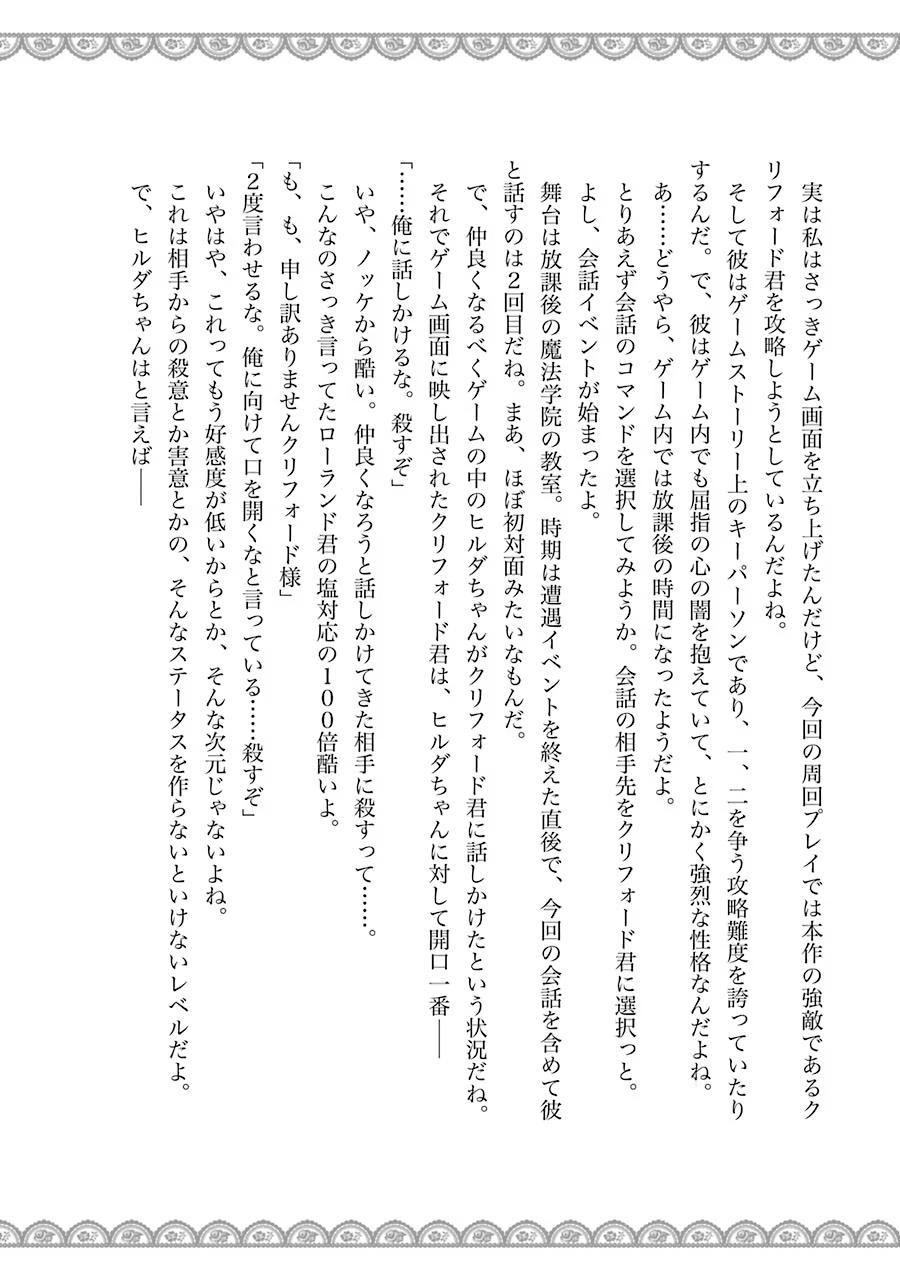 実は私はさっきゲーム画面を立ち上げたんだけど、今回の周回プレイでは本作の強敵であるク
リフォード君を攻略しようとしているんだよね。
　そして彼はゲームストーリー上のキーパーソンであり、一、二を争う攻略難度を誇っていたり
するんだ。で、彼はゲーム内でも屈指の心の闇を抱えていて、とにかく強烈な性格なんだよね。
　あ……どうやら、ゲーム内では放課後の時間になったようだよ。
　とりあえず会話のコマンドを選択してみようか。会話の相手先をクリフォード君に選択っと。
　よし、会話イベントが始まったよ。
　舞台は放課後の魔法学院の教室。時期は遭遇イベントを終えた直後で、今回の会話を含めて彼
と話すのは２回目だね。まあ、ほぼ初対面みたいなもんだ。
　で、仲良くなるべくゲームの中のヒルダちゃんがクリフォード君に話しかけたという状況だね。
　それでゲーム画面に映し出されたクリフォード君は、ヒルダちゃんに対して開口一番――
「……俺に話しかけるな。殺すぞ」
　いや、ノッケから酷い。仲良くなろうと話しかけてきた相手に殺すって……。
　こんなのさっき言ってたローランド君の塩対応の１００倍酷いよ。
「も、も、申し訳ありませんクリフォード様」
「２度言わせるな。俺に向けて口を開くなと言っている……殺すぞ」
　いやはや、これってもう好感度が低いからとか、そんな次元じゃないよね。
　これは相手からの殺意とか害意とかの、そんなステータスを作らないといけないレベルだよ。
　で、ヒルダちゃんはと言えば――